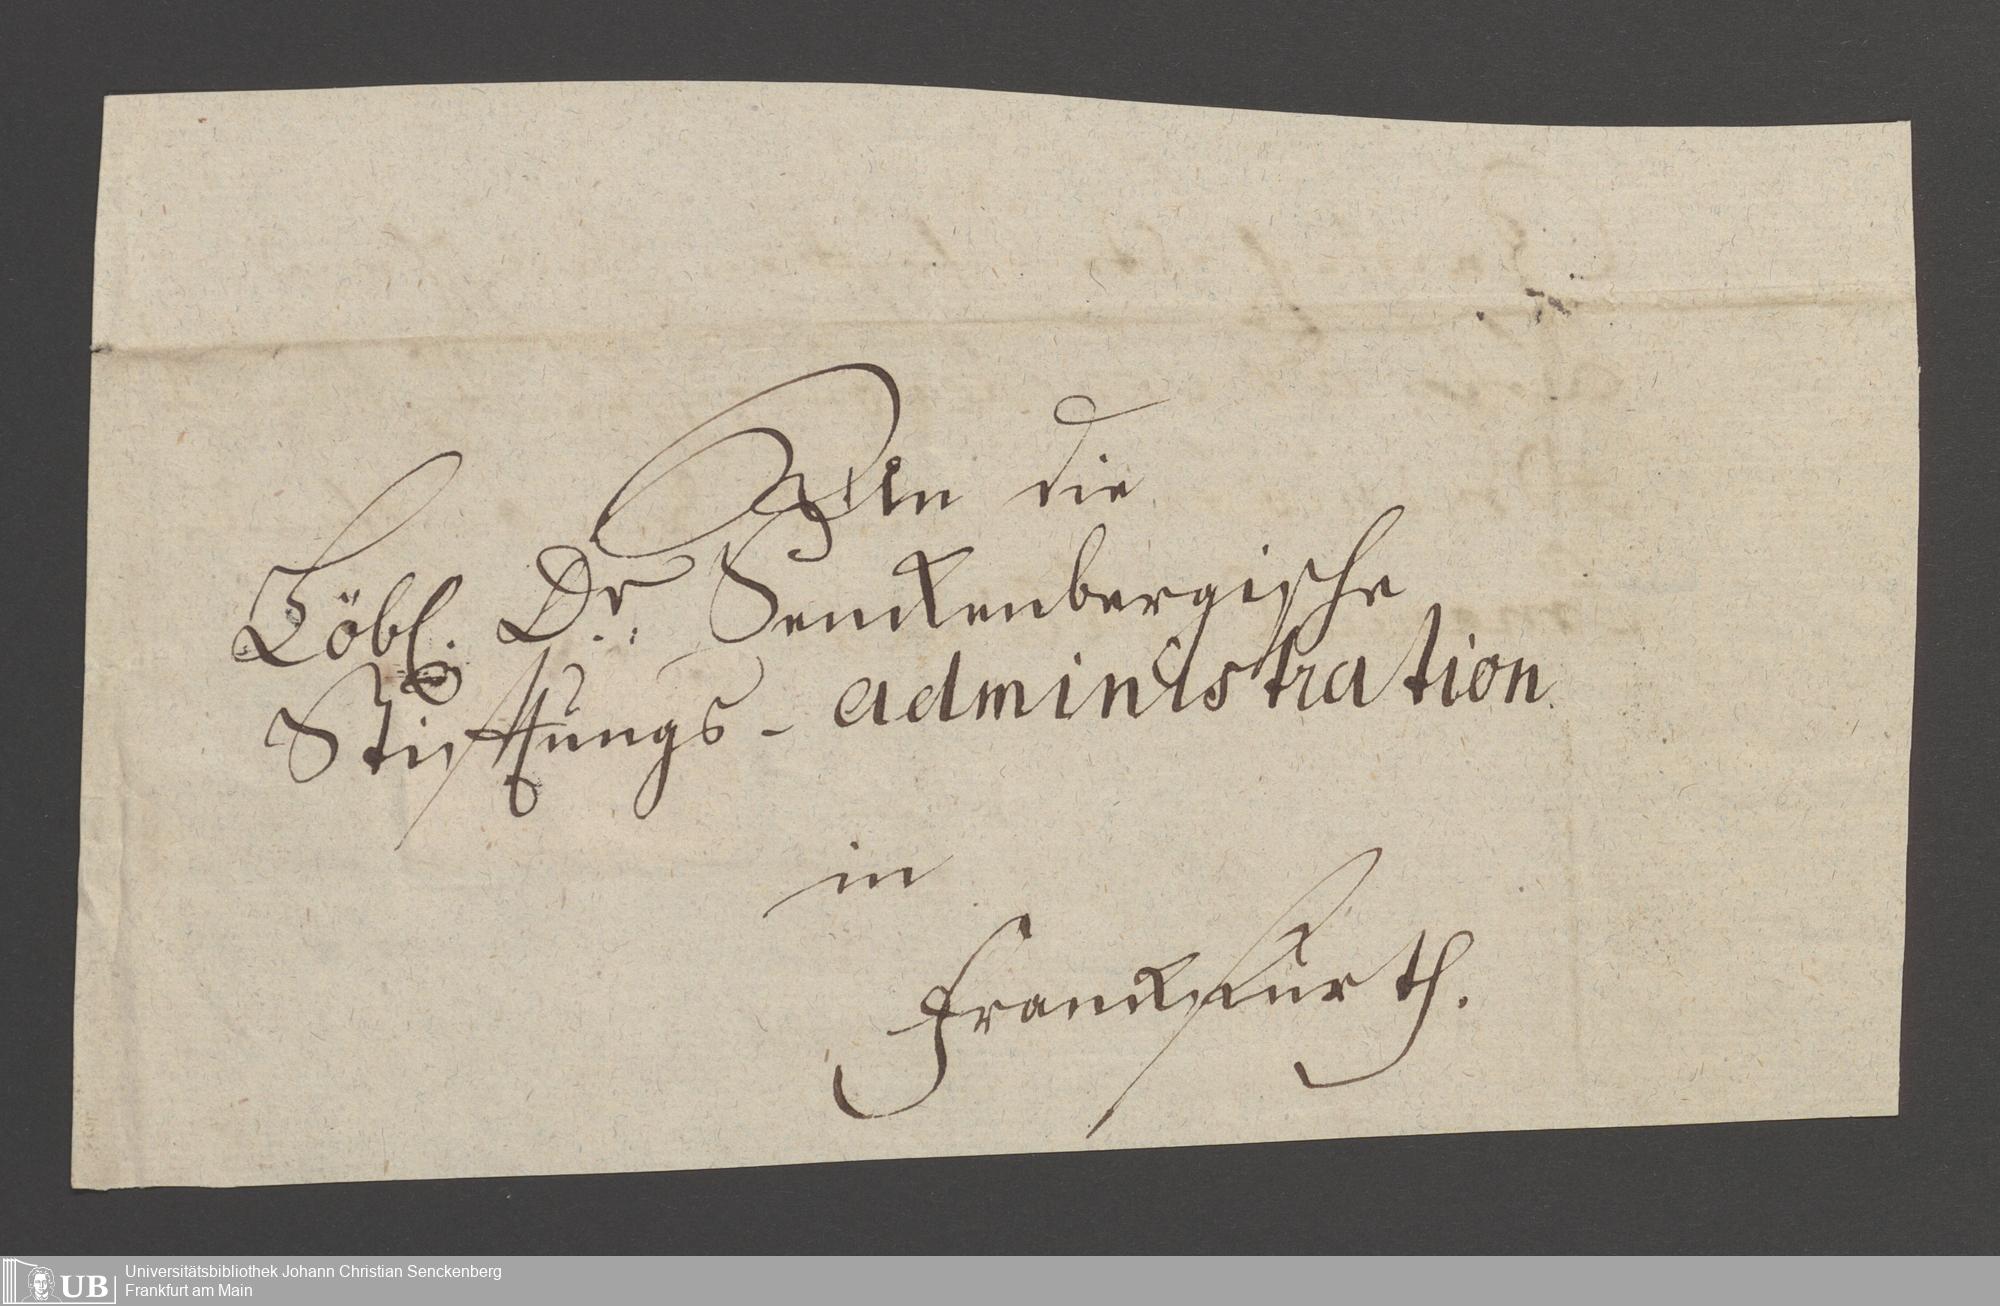 An die
Löbl. Dr. Senckenbergische
Stifftungs-administration
in
Franckfurth.
Universitätsbibliothek Johann Christian Senckenberg
Frankfurt am Main
UB